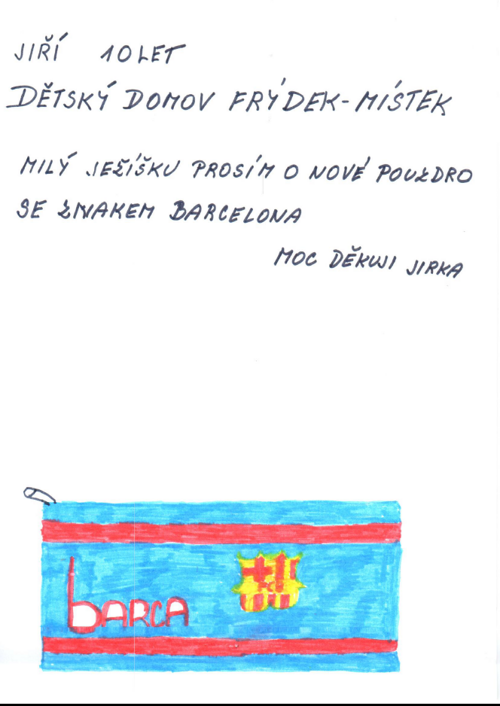 JIŘÍ 10 LET
DĚTSKÝ DOMOV FRÝDEK-MÍSTEK
MILÝ JEŽÍŠKU PROSÍM O NOVÉ POUZDRO
SE ZNAKEM BARCELONA
MOC DĚKUJI JIRKA
bARCA